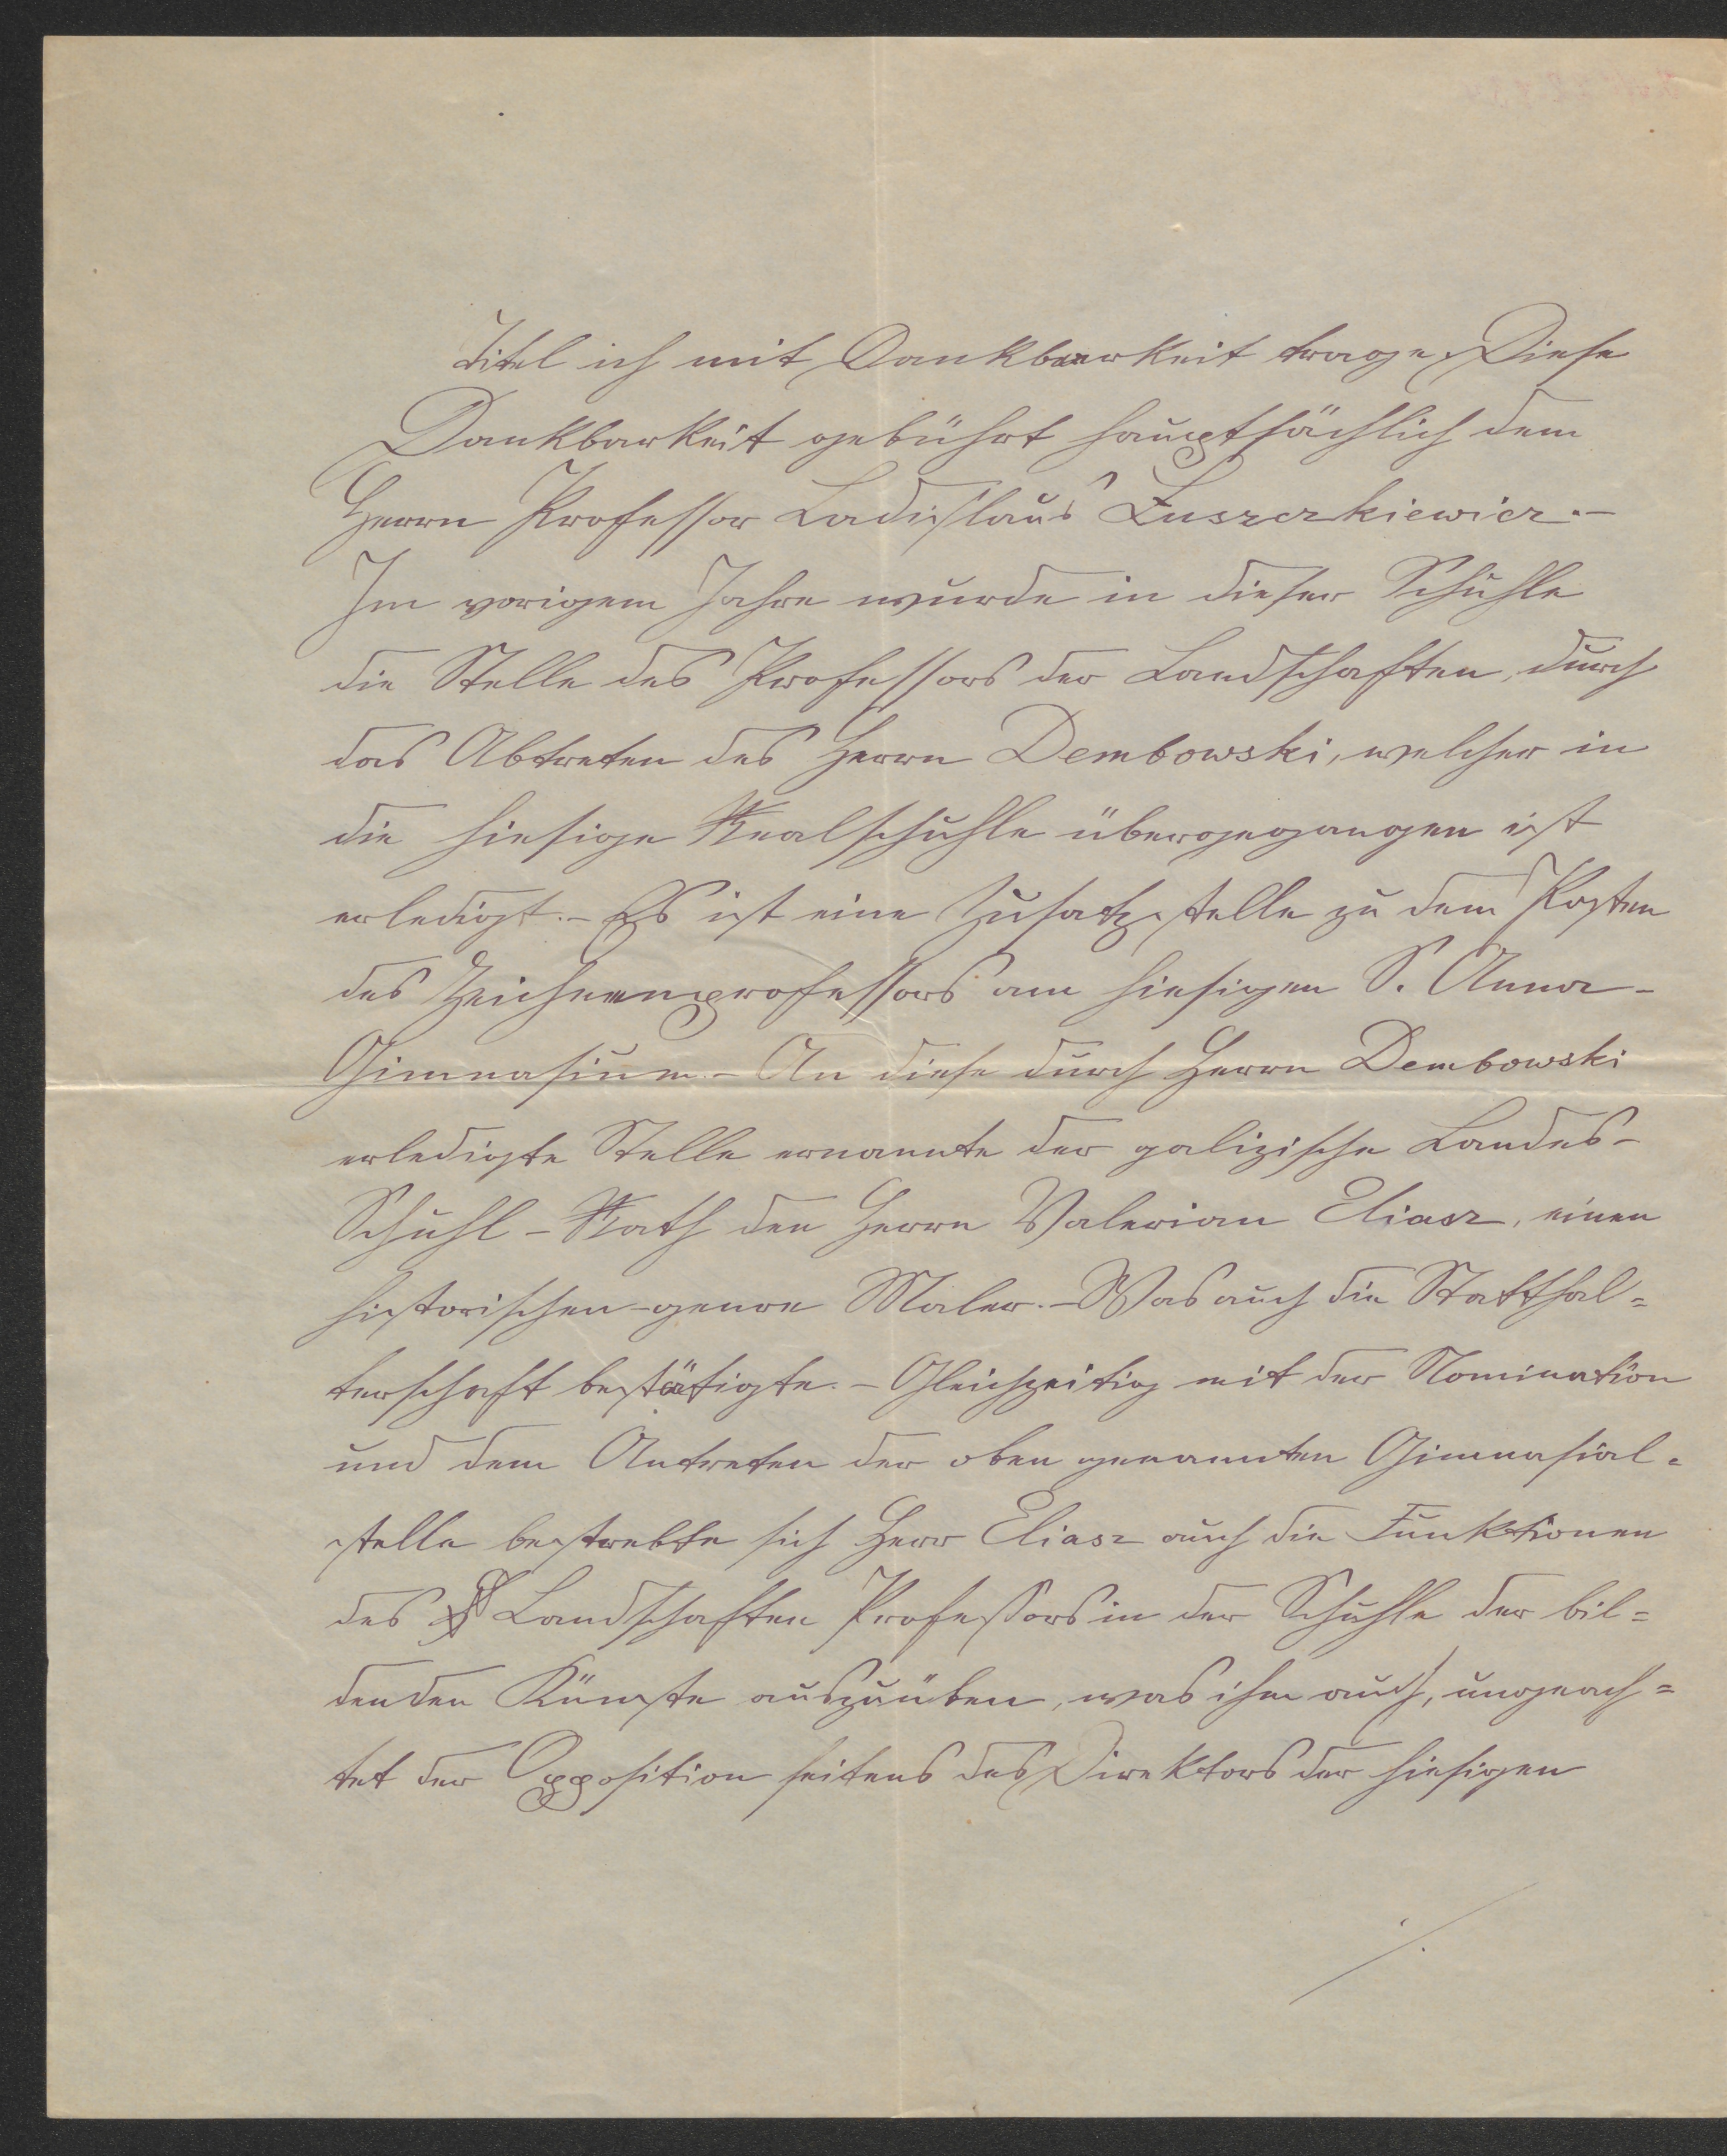 Titel ich mit Dankbarkeit trage. Diese
Dankbarkeit gebührt hauptsächlich dem
Herrn Professor Ladislaus Łuszczkiewicz.-
Im vorigem Jahre wurde in dieser Schuhle
die Stelle des Professors der Landschaften, durch
das Abtreten des Herrn Dembowski, welcher in
die hiesige Realschuhle übergegangen ist
erledigt.- Es ist eine Zusatzstelle zu dem Posten
des Zeichnenprofessors am hiesigen S. Anna-
Gimnasium.- An diese durch Herrn Dembowski
erledigte Stelle ernannte der galizische Landes-
Schuhl-Rath den Herrn Valerian Eliasz, einen
historischen-genre Maler.- Was auch die Statthal=
terschaft bestätigte.- Gleichzeitig mit der Nomination
und dem Antreten der oben genannten Gimnasial=
stelle bestrebte sich Herr Eliasz auch die Funktionen
des Landschaften Professors in der Schuhle der bil=
denden Künste auszuüben, was ihm auch, ungeach=
tet der Opposition seitens des Direktors der hiesigen
./.